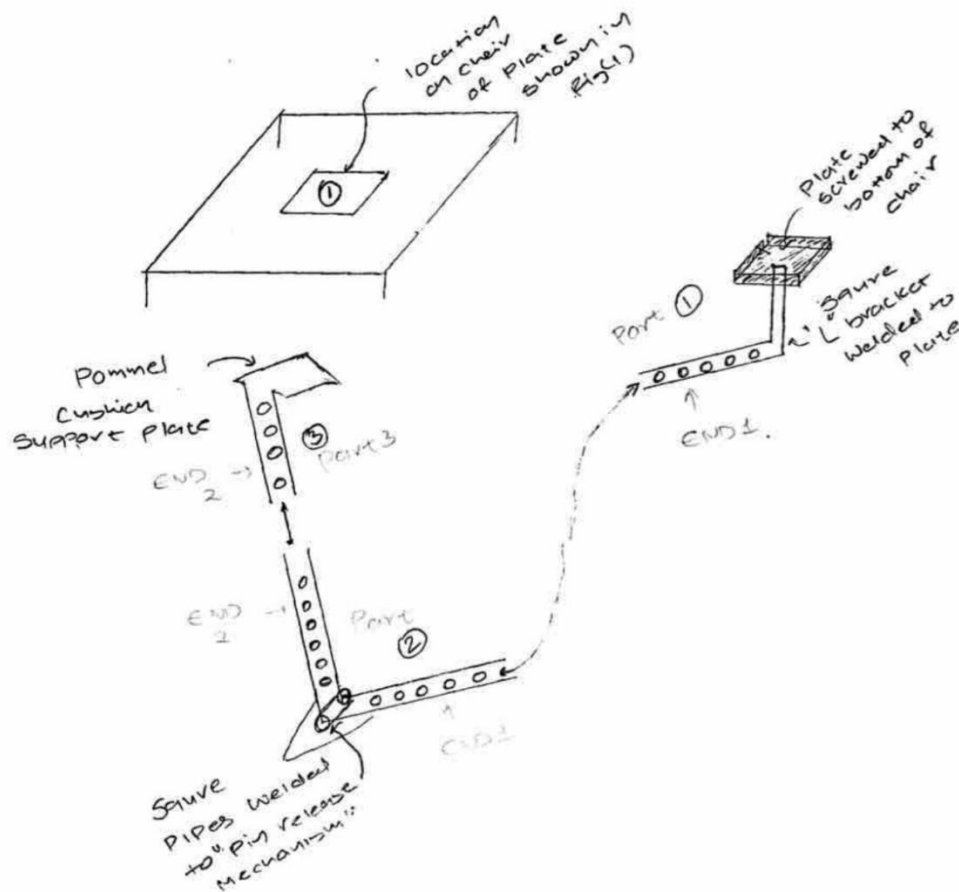 location
on chair
of plate
shown in
fig(1)
①
Plate
screwed to
bottom of
chair
Part ①
Squre
"L" bracket
welded to
plate
END 1.
Pommel
Cushion
Support plate
③
Part 3
END
2
END
2
Part
②
END 1
Squre
Pipes welded
to "Pin release
mechanism"